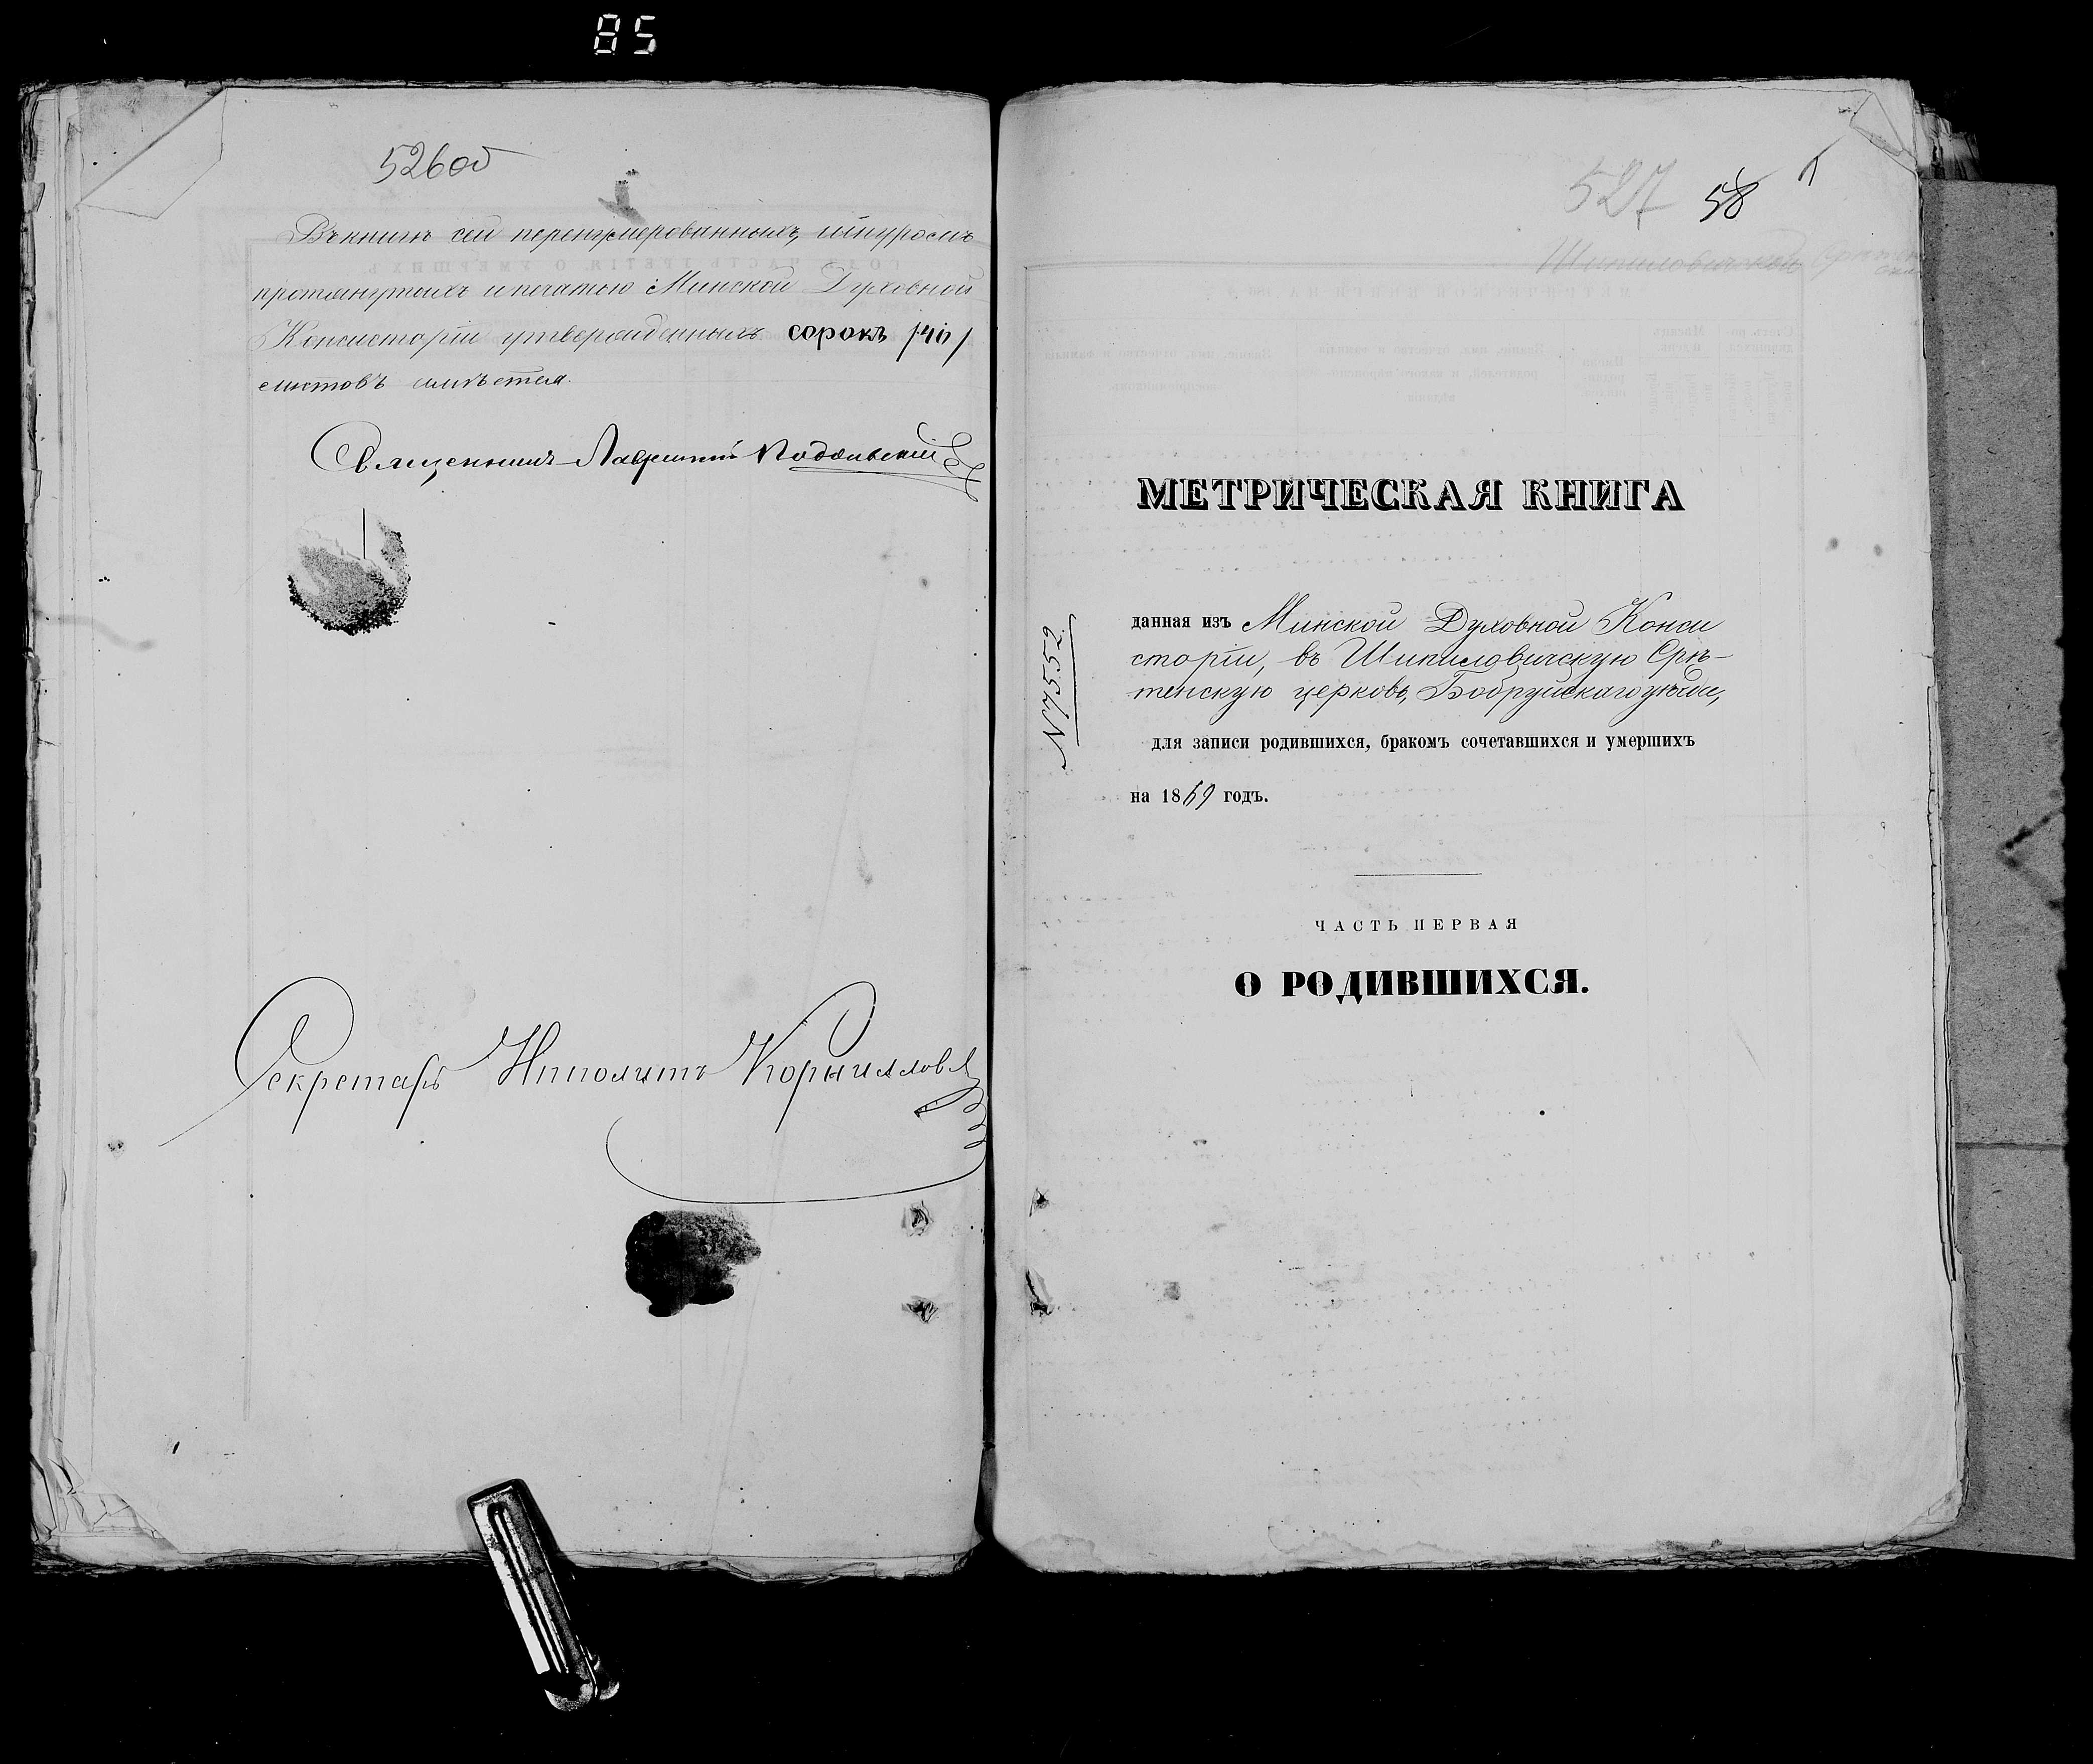 85
526об
Въ книгѣ сей перенумерованныхъ, шнуромъ
протянутыхъ и печатью Минской Духовной
Консисторіи утвержденныхъ сорокъ /40/
листовъ имѣется.
Священникъ Лаврентій Подольскій
Секретарь Ипполитъ Корниловъ
527 58 1
Шипиловичской Срѣтен
ская
МЕТРИЧЕСКАЯ КНИГА
N 7552.
данная изъ Минской Духовной Конси
сторіи, въ Шипиловичскую Срѣ-
тенскую церковь, Бобруйскаго уѣзда,
для записи родившихся, бракомъ сочетавшихся и умершихъ
на 1869 годъ.
ЧАСТЬ ПЕРВАЯ
О РОДИВШИХСЯ.